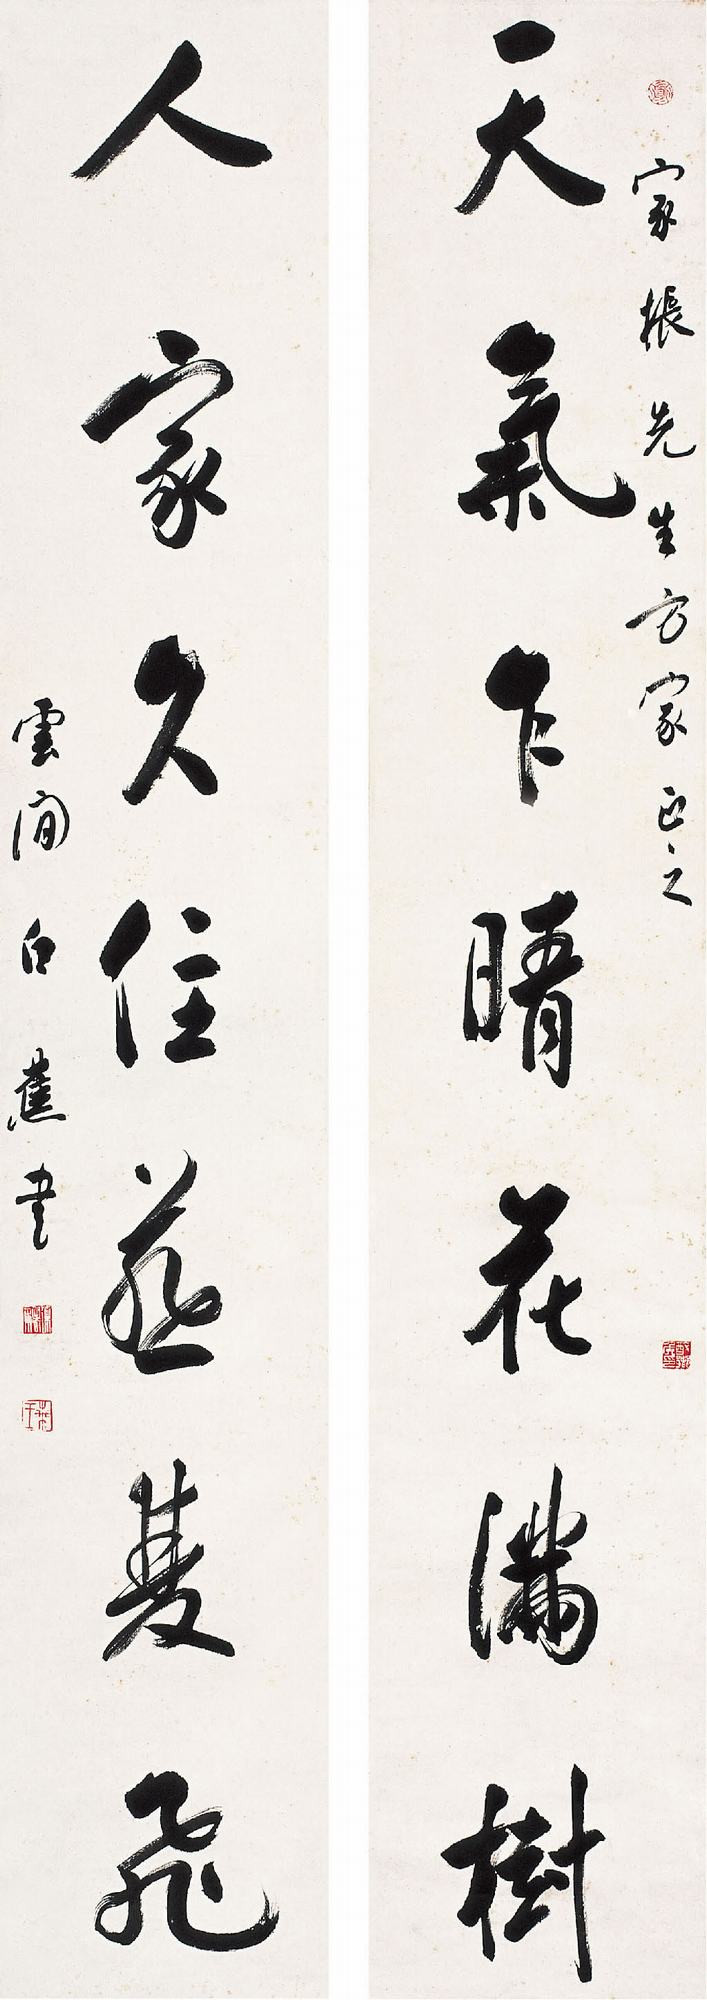 天氣乍晴花滿樹
家棖先生方家正之
人家久住燕雙飛
雲間白蕉書